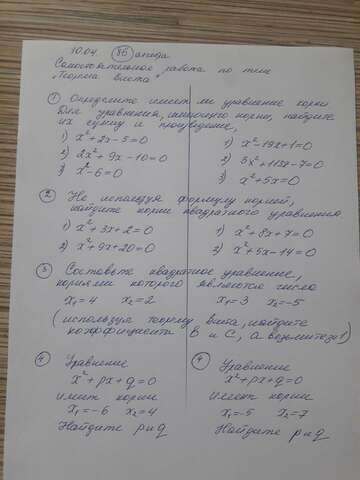 30.04 8б алгебра
Самостоятельная работа по теме
"Теорема Виета"
① Определите имеет ли уравнение корни
Для уравнения, имеющего корни, найдите
их сумму и произведение,
1) x²+2x-5=0 1) x²-19x+1=0
2) 2x²+9x-10=0 2) 5x²+113x-7=0
3) x²-6=0 3) x²+5x=0
② Не используя формулу корней,
найдите корни квадратного уравнения
1) x²+3x+2=0 1) x²+8x+7=0
2) x²+9x+20=0 2) x²+5x-14=0
③ Составьте квадратное уравнение,
корнями которого являются числа
x₁=4 x₂=2 x₁=3 x₂=-5
(используя теорему Виета, найдите
коэффициенты B и C, A возьмите за 1)
④ Уравнение ④ Уравнение
x²+px+q=0 x²+px+q=0
имеет корни имеет корни
x₁=-6 x₂=4 x₁=-5 x₂=7
Найдите p и q Найдите p и q